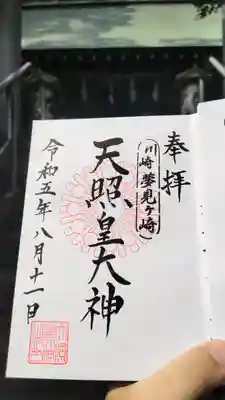 奉拝
(川崎夢見ヶ崎)
天照皇大神
令和五年八月十一日